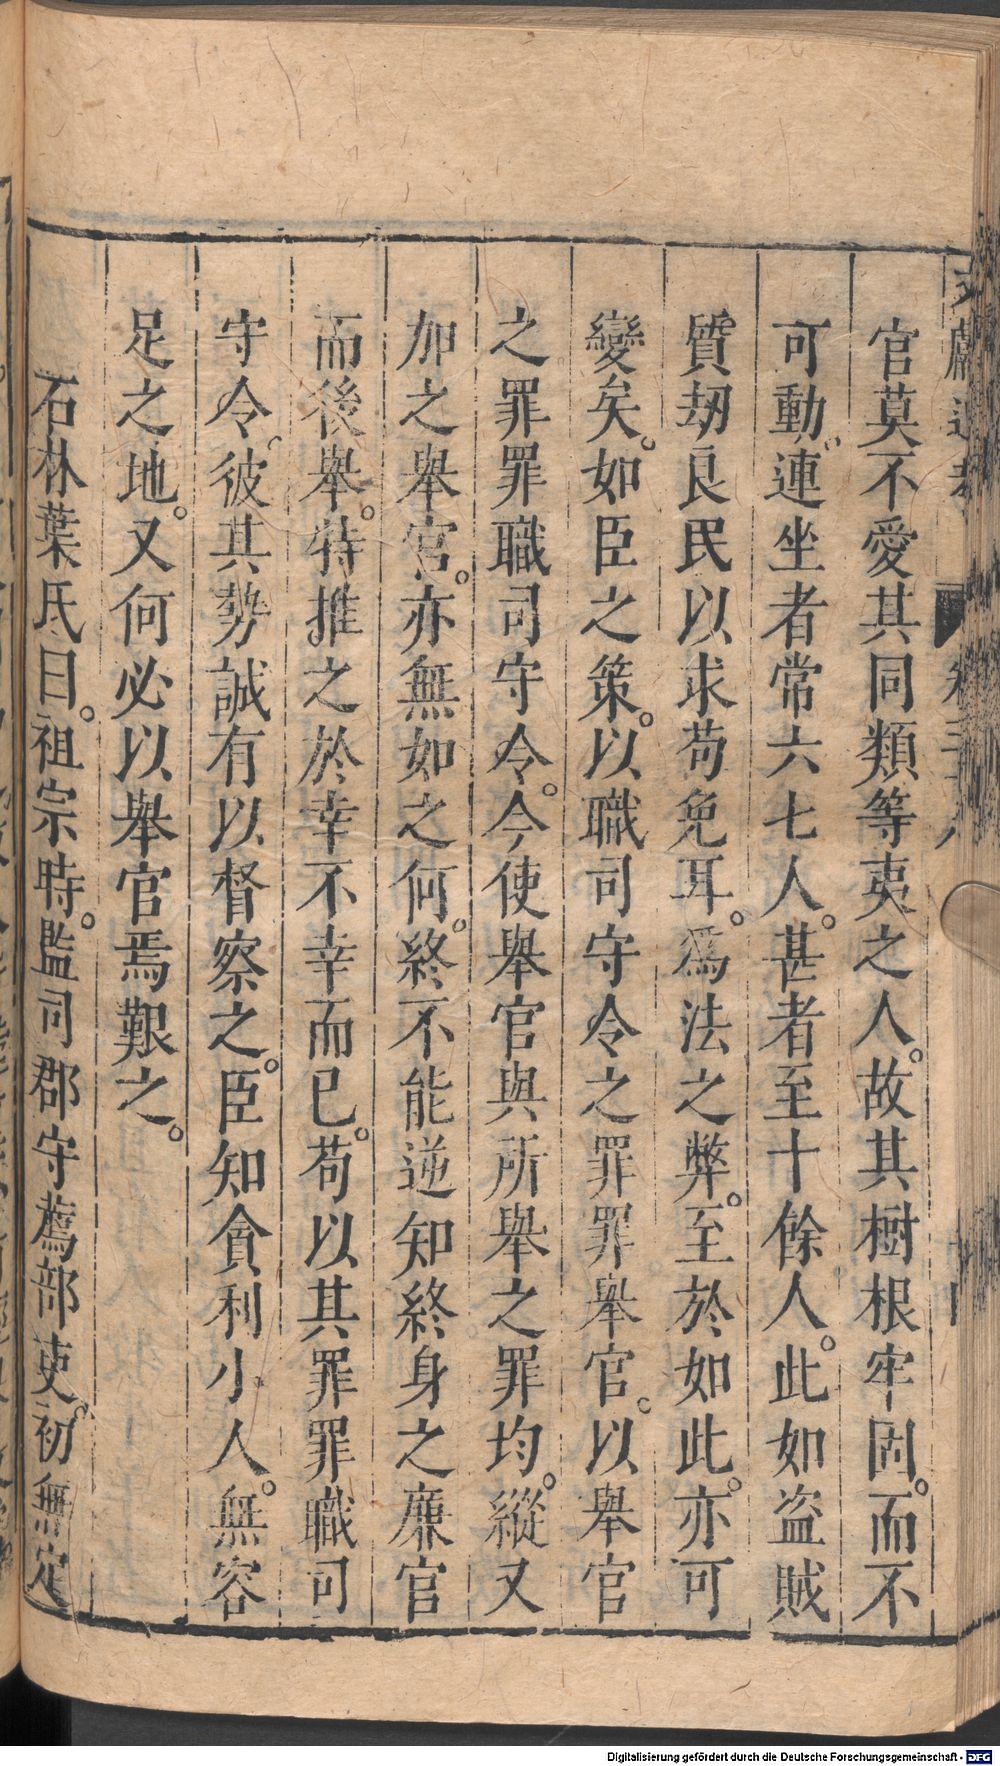 官莫不愛其同類等夷之人。故其樹根牢固。而不
可動。連坐者常六七人。甚者至十餘人。此如盜賊
質刼良民以求苟免耳。爲法之弊。至於如此。亦可
變矣。如臣之策。以職司守令之罪罪舉官。以舉官
之罪罪職司守令。今使舉官與所舉之罪均。縱又
加之舉官。亦無如之何。終不能逆知終身之廉官
而後舉。特推之於幸不幸而已。苟以其罪罪職司
守令。彼其勢誠有以督察之。臣知貪利小人。無容
足之地。又何必以舉官焉艱之。
石林葉氏曰。祖宗時。監司郡守薦部吏。初無定
Digitalisierung gefördert durch die Deutsche Forschungsgemeinschaft - DFG